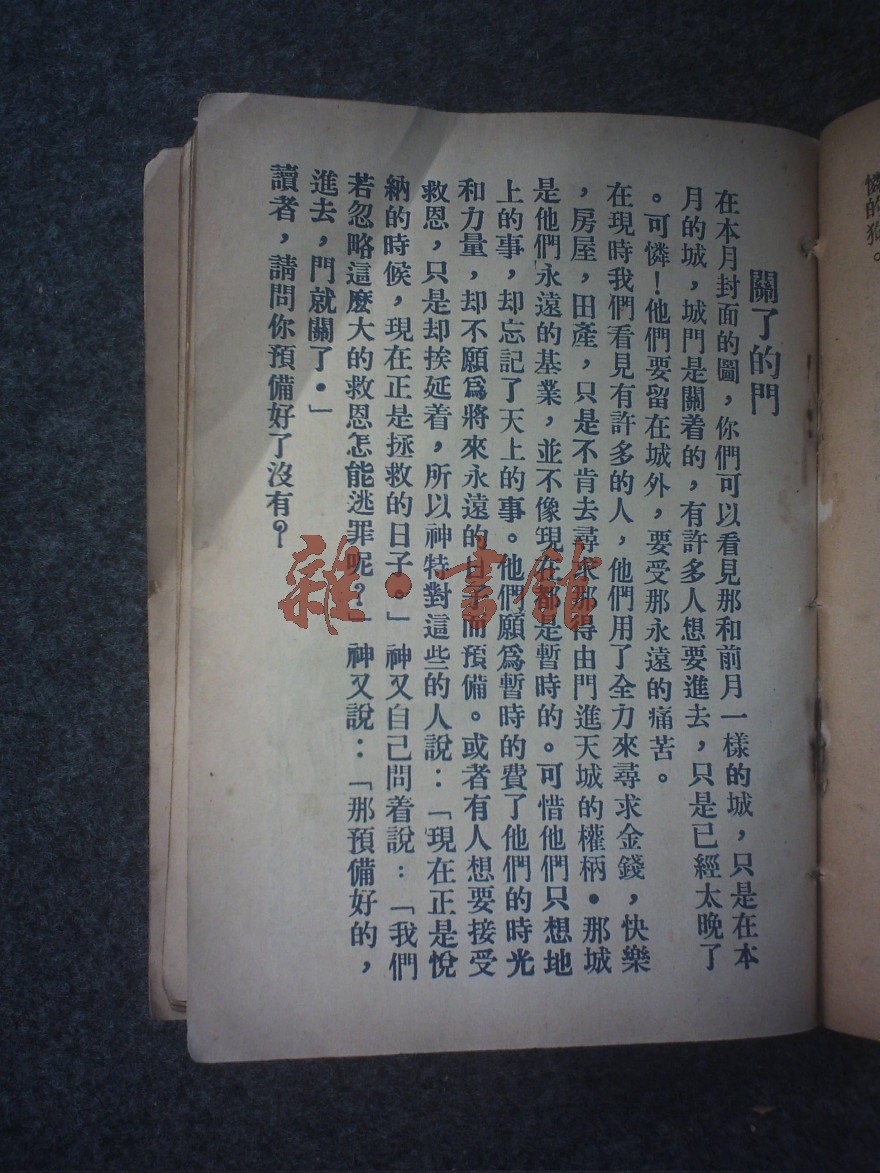 關了的門
在本月封面的圖，你們可以看見那和前月一樣的城，只是在本
月的城，城門是關着的，有許多人想要進去，只是已經太晚了
。可憐！他們要留在城外，要受那永遠的痛苦。
在現時我們看見有許多的人，他們用了全力來尋求金錢，快樂
，房屋，田產，只是不肯去尋求那得由門進天城的權柄．那城
是他們永遠的基業，並不像現在都是暫時的。可惜他們只想地
上的事，却忘記了天上的事。他們願爲暫時的費了他們的時光
和力量，却不願爲將來永遠的日子而預備。或者有人想要接受
救恩，只是却挨延着，所以神特對這些的人說：「現在正是悅
納的時候，現在正是拯救的日子。」神又自己問着說：「我們
若忽略這麽大的救恩怎能逃罪呢？」神又說：「那預備好的，
進去，門就關了．」
讀者，請問你預備好了沒有？
憐的狗。
雜·書館